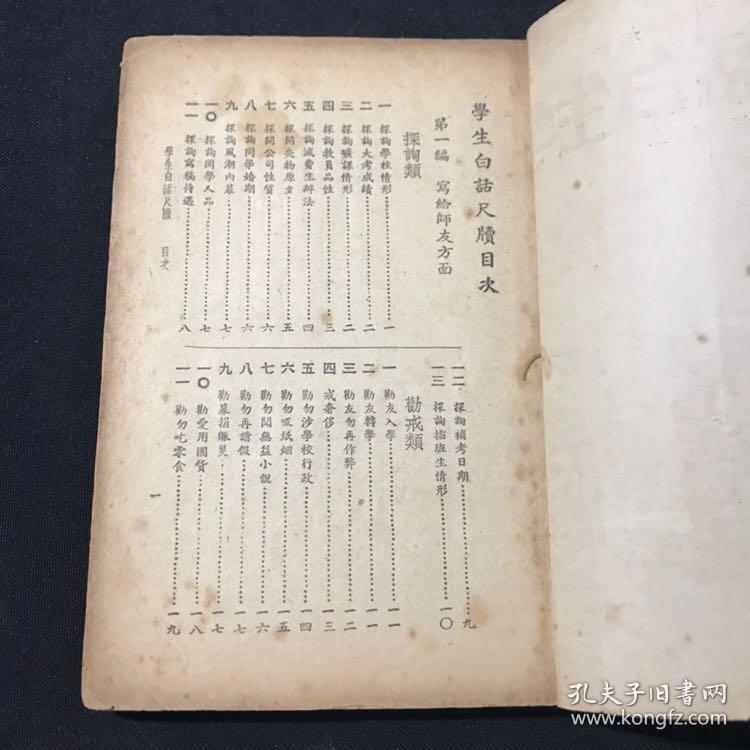 學生白話尺牘目次
第一編 寫給師友方面
探詢類
一 探詢學校情形 一
二 探詢大考成績 二
三 探詢曠課情形 二
四 探詢教員品性 三
五 探詢減費生辦法 四
六 探問失物原主 五
七 探問公司性質 六
八 探詢同學婚期 六
九 探詢風潮內幕 七
一〇 探詢同學人品 七
一一 探詢寫稿待遇 八
一二 探詢補考日期 九
一三 探詢插班生情形 一〇
勸戒類
一 勸友入學 一一
二 勸友轉學 一一
三 勸友勿再作弊 一二
四 戒奢侈 一三
五 勸勿涉學校行政 一四
六 勸勿吸紙烟 一五
七 勸勿閱無益小說 一六
八 勸勿再請假 一七
九 勸募捐賑災 一七
一〇 勸愛用國貨 一八
一一 勸勿吃零食 一九
學生白話尺牘 目次
一
孔夫子旧书网
www.kongfz.com